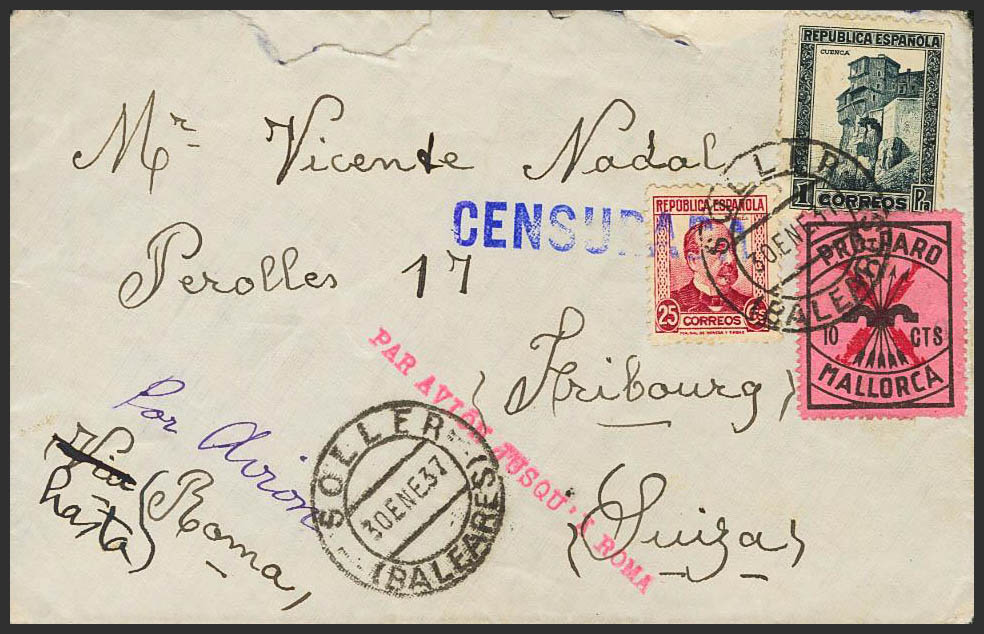 REPUBLICA ESPAÑOLA
CUENCA
1 CORREOS Pta
Mr Vicente Nadal
SOLLER (BALEARES)
30 ENE 37
CENSURADA
REPUBLICA ESPAÑOLA
25 CTS
CORREOS
PRO-PARO
10 CTS
MALLORCA
Perolles 17
PAR AVION JUSQU'A ROMA
(Fribourg)
Por Avion
Via
hasta (Roma)
SOLLER (BALEARES)
30 ENE 37
(Suiza)